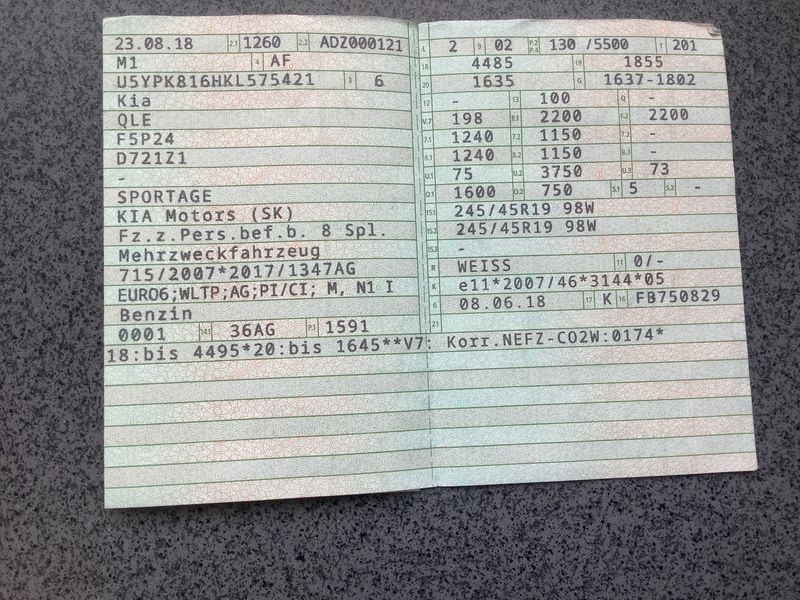 23.08.18 2.1 1260 2.2 ADZ000121
M1 4 AF
U5YPK816HKL575421 3 6
Kia
QLE
F5P24
D721Z1
-
SPORTAGE
KIA Motors (SK)
Fz.z.Pers.bef.b. 8 Spl.
Mehrzweckfahrzeug
715/2007*2017/1347AG
EURO6;WLTP;AG;PI/CI; M, N1 I
Benzin
0001 14.1 36AG P.1 1591
L 2 9 02 P.2 P.4 130 /5500 T 201
18 4485 19 1855
20 1635 G 1637-1802
12 - 13 100 Q -
V.7 198 F.1 2200 F.2 2200
7.1 1240 7.2 1150 7.3 -
8.1 1240 8.2 1150 8.3 -
U.1 75 U.2 3750 U.3 73
O.1 1600 O.2 750 S.1 5 S.2 -
15.1 245/45R19 98W
15.2 245/45R19 98W
15.3 -
R WEISS 11 0/-
K e11*2007/46*3144*05
6 08.06.18 17 K 16 FB750829
21
18:bis 4495*20:bis 1645**V7: Korr.NEFZ-CO2W:0174*